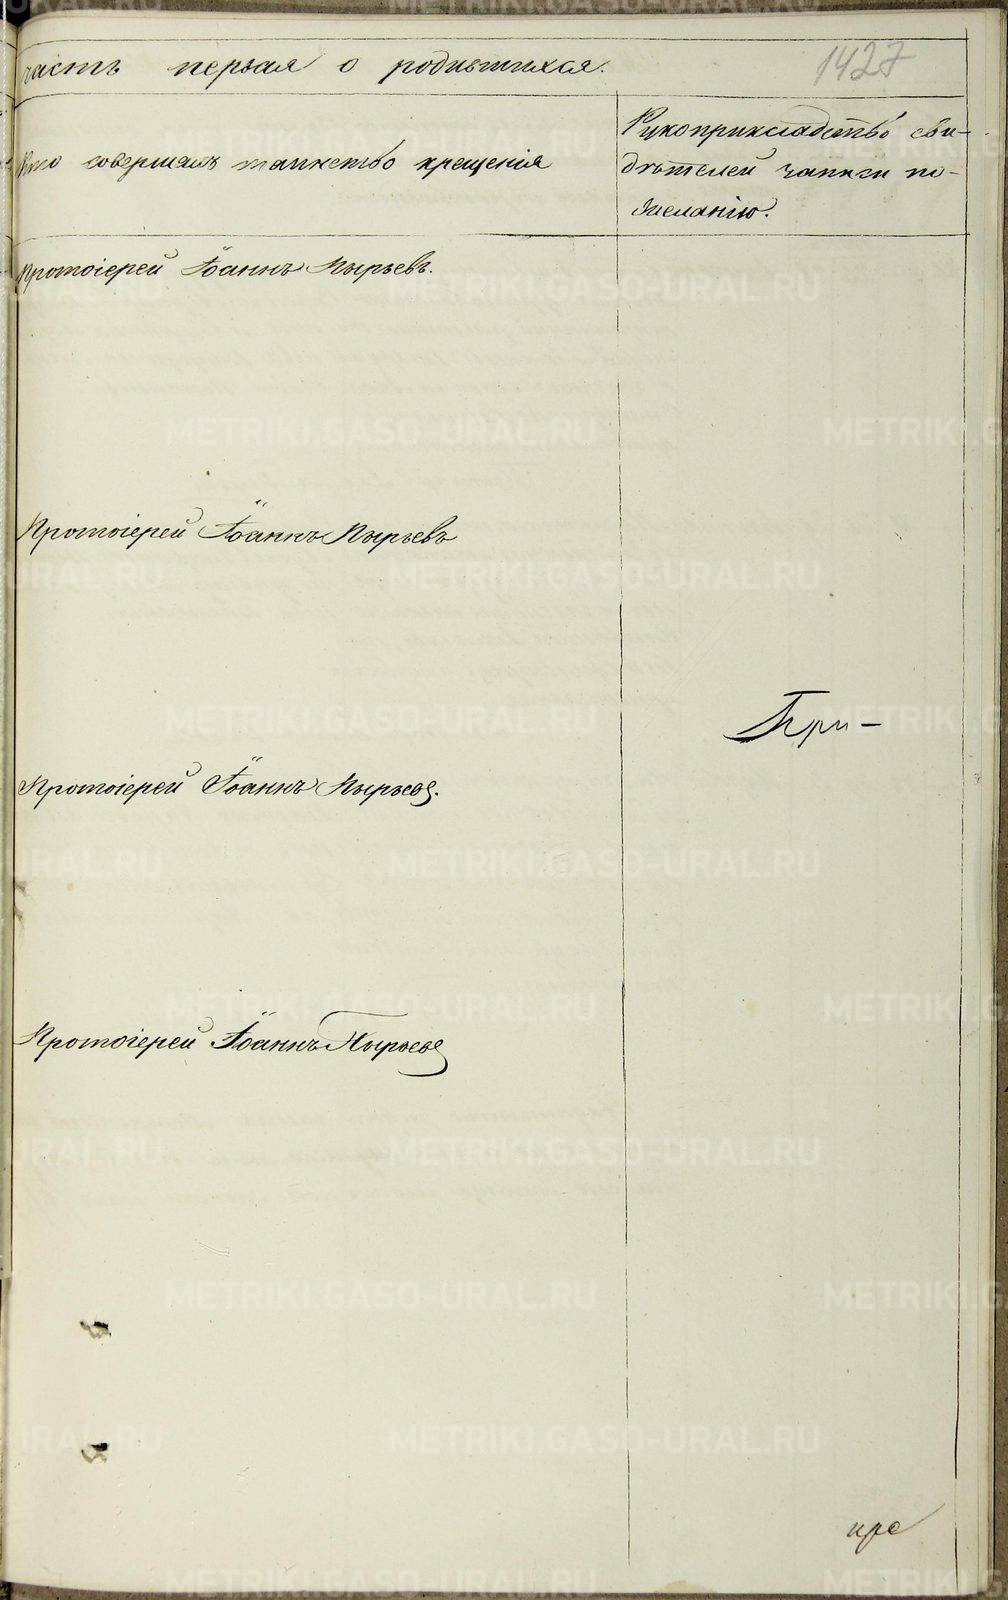 часть первая о родившихся.
1427
Кто совершалъ таинство крещенія
Рукоприкладство сви-
дѣтелей записи по-
желанію.
Протоіерей Іоаннъ Пырьевъ.
Протоіерей Іоаннъ Пырьевъ
При-
Протоіерей Іоаннъ Пырьевъ.
Протоіерей Іоаннъ Пырьевъ
METRIKI.GASO-URAL.RU